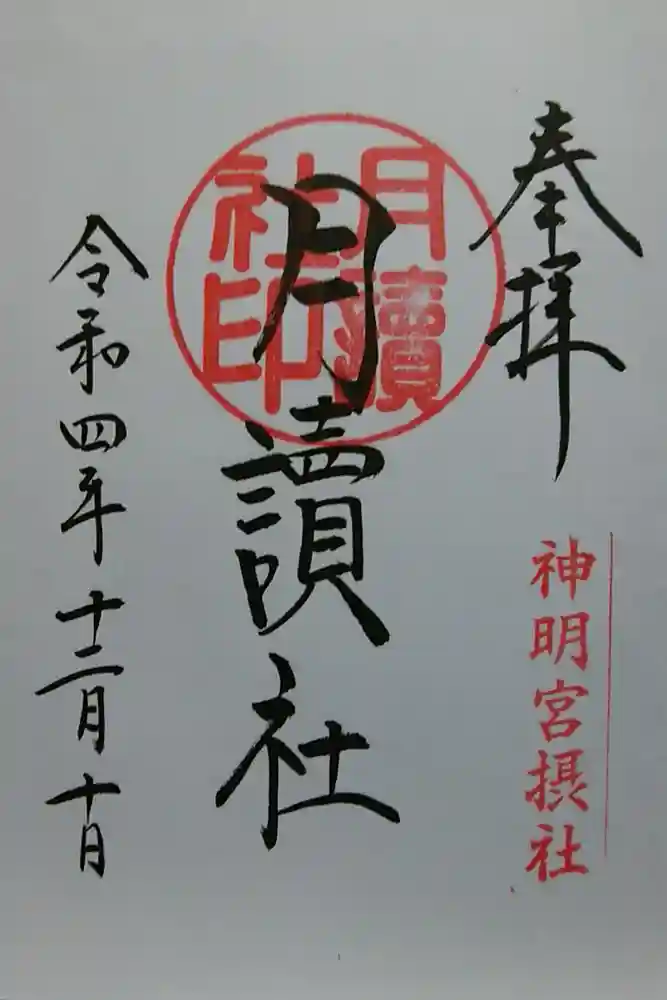 奉拝
神明宮摂社
月讀社
月讀社印
令和四年十二月十日